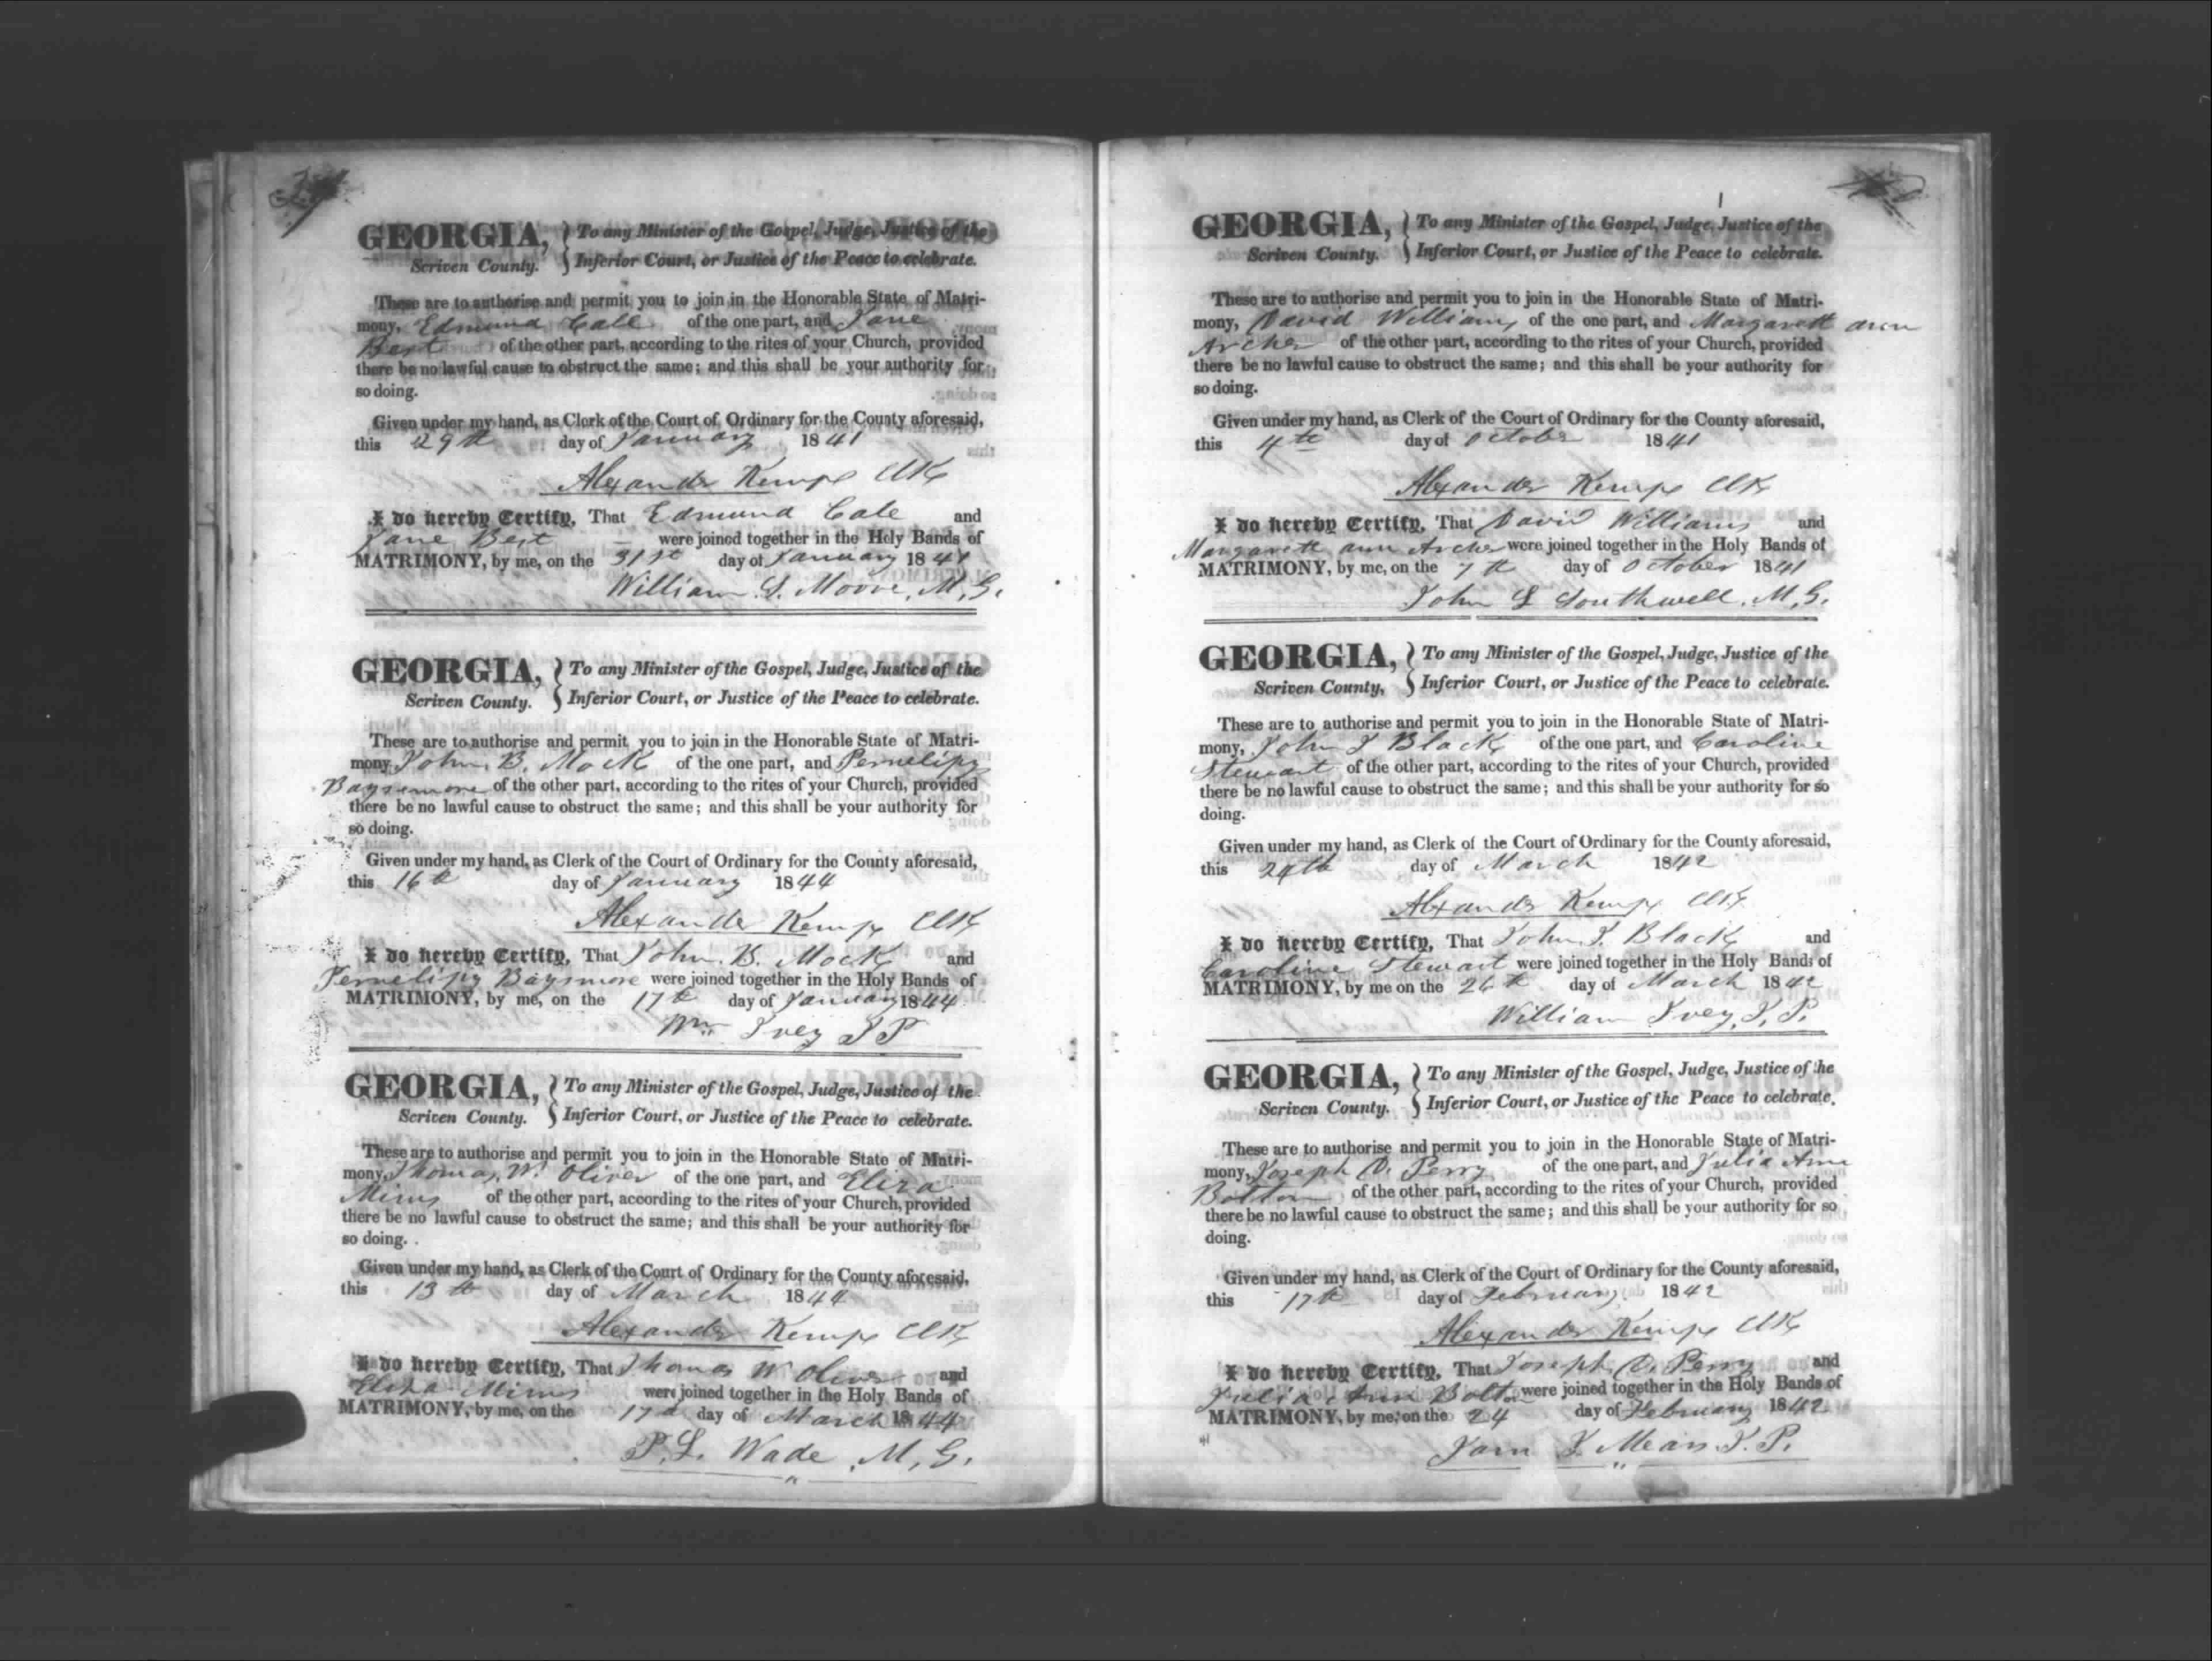 GEORGIA, } To any Minister of the Gospel, Judge, Justice of the
Scriven County. } Inferior Court, or Justice of the Peace to celebrate.
These are to authorise and permit you to join in the Honorable State of Matri-
mony, Edmund Cale of the one part, and Jane
Best of the other part, according to the rites of your Church, provided
there be no lawful cause to obstruct the same; and this shall be your authority for
so doing.
Given under my hand, as Clerk of the Court of Ordinary for the County aforesaid,
this 29th day of January 1841
Alexander Kemp Clk
I do hereby Certify, That Edmund Cale and
Jane Best were joined together in the Holy Bands of
MATRIMONY, by me, on the 31st day of January 1841
William S. Moore, M,G.
GEORGIA, } To any Minister of the Gospel, Judge, Justice of the
Scriven County. } Inferior Court, or Justice of the Peace to celebrate.
These are to authorise and permit you to join in the Honorable State of Matri-
mony, John. B. Mock of the one part, and
of the other part, according to the rites of your Church, provided
there be no lawful cause to obstruct the same; and this shall be your authority for
so doing.
Given under my hand, as Clerk of the Court of Ordinary for the County aforesaid,
this 16th day of January 1844
Alexander Kemp Clk
I do hereby Certify, That John. B. Mock and
were joined together in the Holy Bands of
MATRIMONY, by me, on the 17th day of January 1844
Wm Ivey J P
GEORGIA, } To any Minister of the Gospel, Judge, Justice of the
Scriven County. } Inferior Court, or Justice of the Peace to celebrate.
These are to authorise and permit you to join in the Honorable State of Matri-
mony, Thomas, W. Oliver of the one part, and Eliza
Mims of the other part, according to the rites of your Church, provided
there be no lawful cause to obstruct the same; and this shall be your authority for
so doing.
Given under my hand, as Clerk of the Court of Ordinary for the County aforesaid,
this 13th day of March 1844
Alexander Kemp Clk
I do hereby Certify, That Thomas W Oliver and
Eliza Mims were joined together in the Holy Bands of
MATRIMONY, by me, on the 17th day of March 1844
P. L. Wade, M, G.
GEORGIA, } To any Minister of the Gospel, Judge, Justice of the
Scriven County. } Inferior Court, or Justice of the Peace to celebrate.
These are to authorise and permit you to join in the Honorable State of Matri-
mony, David Williams of the one part, and Margarett ann
Archer of the other part, according to the rites of your Church, provided
there be no lawful cause to obstruct the same; and this shall be your authority for
so doing.
Given under my hand, as Clerk of the Court of Ordinary for the County aforesaid,
this 4th day of October 1841
Alexander Kemp Clk
I do hereby Certify, That David Williams and
Margarett ann Archer were joined together in the Holy Bands of
MATRIMONY, by me, on the 7th day of October 1841
John L Southwell, M,G.
GEORGIA, } To any Minister of the Gospel, Judge, Justice of the
Scriven County, } Inferior Court, or Justice of the Peace to celebrate.
These are to authorise and permit you to join in the Honorable State of Matri-
mony, John J Black of the one part, and Caroline
Stewart of the other part, according to the rites of your Church, provided
there be no lawful cause to obstruct the same; and this shall be your authority for so
doing.
Given under my hand, as Clerk of the Court of Ordinary for the County aforesaid,
this day of March 1842
Alexander Kemp Clk
I do hereby Certify, That John J. Black and
Caroline Stewart were joined together in the Holy Bands of
MATRIMONY, by me on the 26th day of March 1842
William Ivey, J, P.
GEORGIA, } To any Minister of the Gospel, Judge, Justice of the
Scriven County. } Inferior Court, or Justice of the Peace to celebrate.
These are to authorise and permit you to join in the Honorable State of Matri-
mony, Joseph Perry of the one part, and Julia Ann
Bolton of the other part, according to the rites of your Church, provided
there be no lawful cause to obstruct the same; and this shall be your authority for so
doing.
Given under my hand, as Clerk of the Court of Ordinary for the County aforesaid,
this 17th day of February 1842
Alexander Kemp Clk
I do hereby Certify, That Joseph Perry and
Julia Ann Bolton were joined together in the Holy Bands of
MATRIMONY, by me, on the 24 day of February 1842
J. Mears J. P.